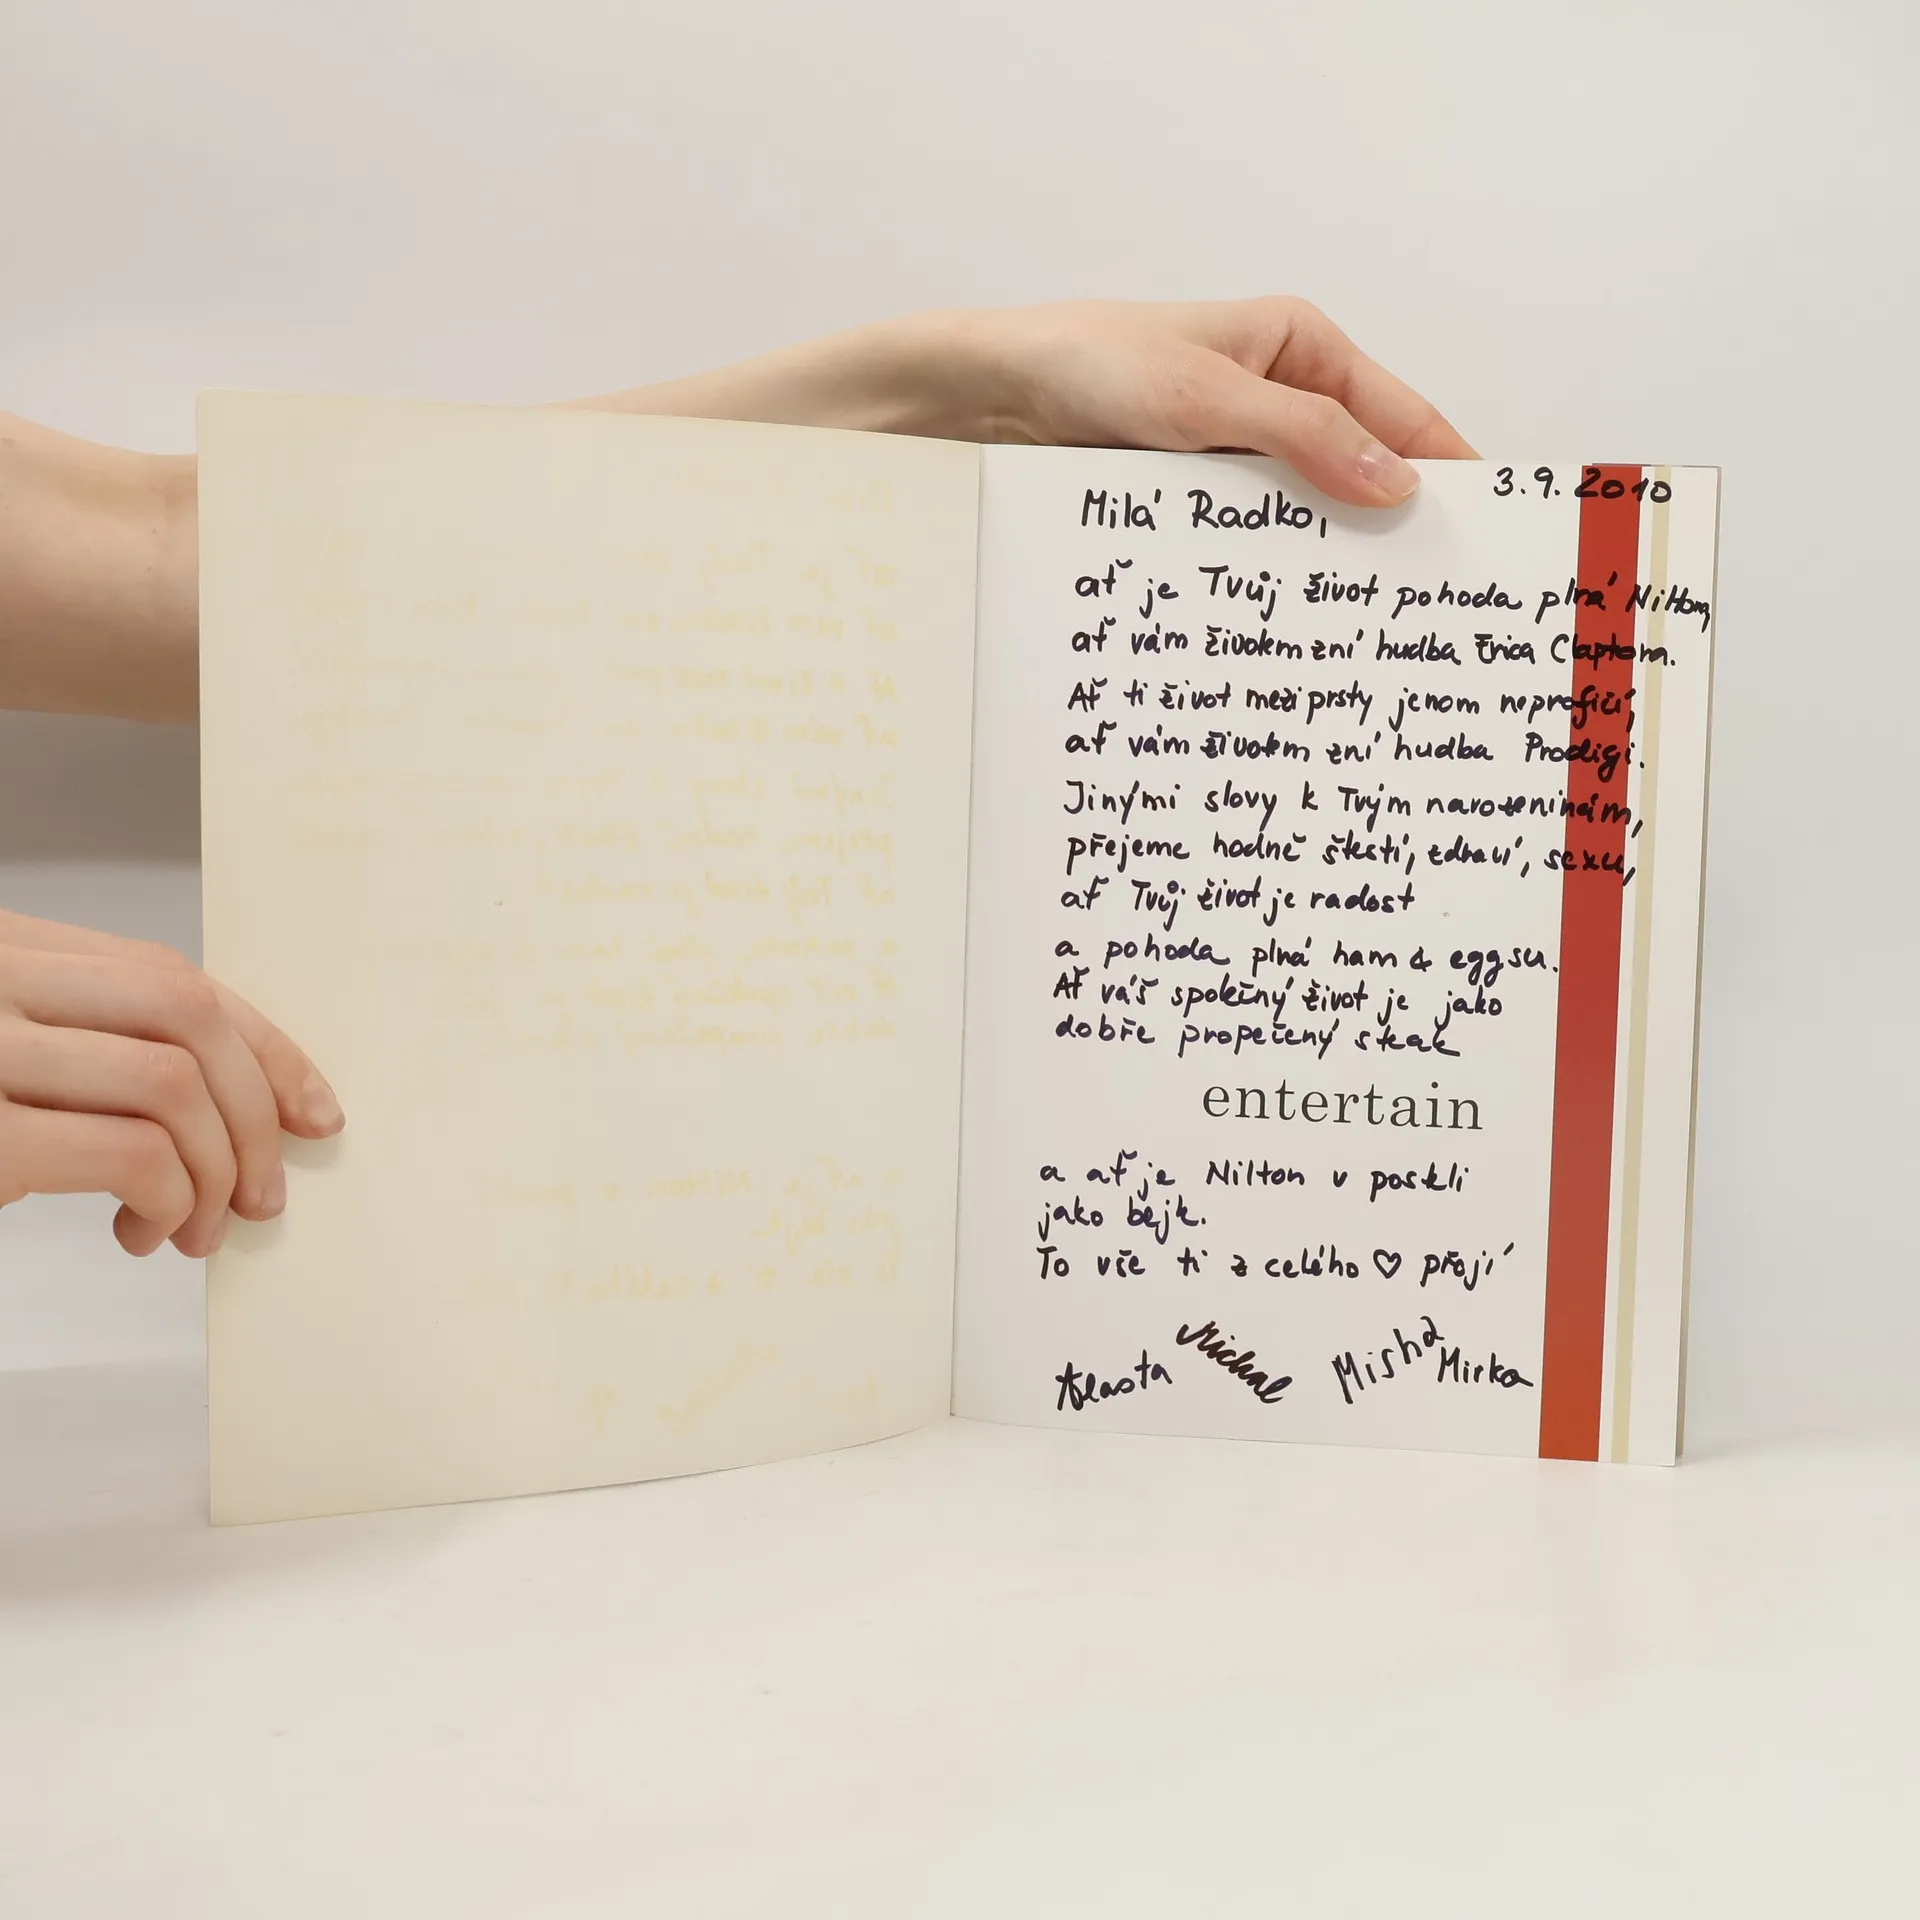 3.9.2010
Milá Radko,
ať je Tvůj život pohoda plná Niltona,
ať vám životem zní hudba Erica Claptona.
Ať ti život mezi prsty jenom neprofičí,
ať vám životem zní hudba Prodigi.
Jinými slovy k Tvým narozeninám,
přejeme hodně štestí, zdraví, sexu,
ať Tvůj život je radost
a pohoda plná ham & eggsu.
Ať váš společný život je jako
dobře propečený steak
entertain
a ať je Nilton v posteli
jako bejk.
To vše ti z celého ♡ přejí
Vlasta Michal Misha Mirka